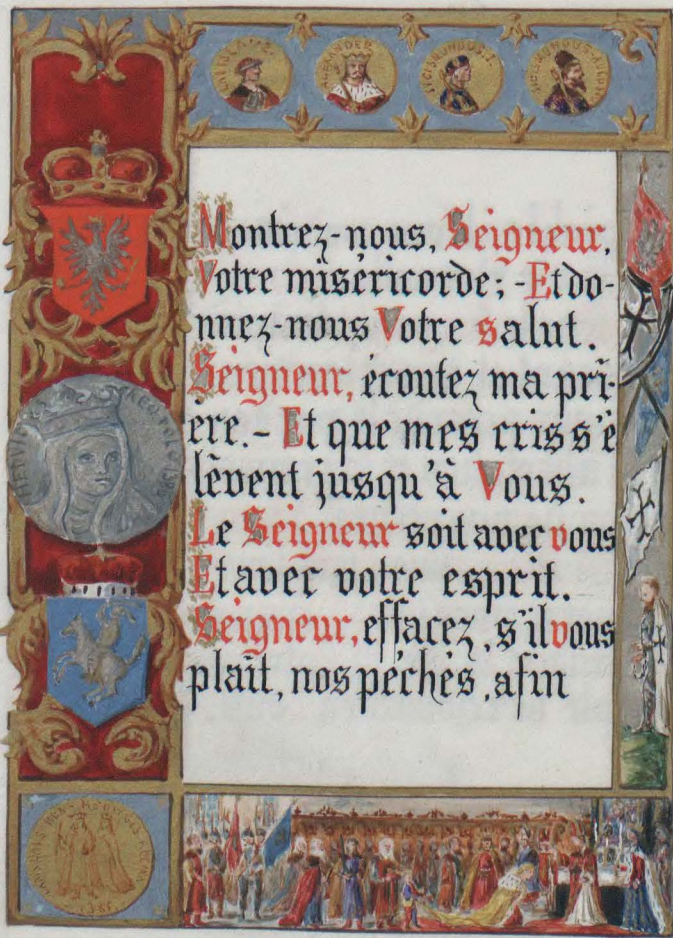 ALEXANDER
SIGISMUNDUS.I
Montrez-nous, Seigneur,
Votre miséricorde; -Et do-
nnez-nous Votre salut.
Seigneur, écoutez ma pri-
ère.- Et que mes cris s'é
lèvent jusqu'à Vous.
Le Seigneur soit avec vous
Et avec votre esprit.
Seigneur, effacez, s'il vous
plaît, nos péchés, afin